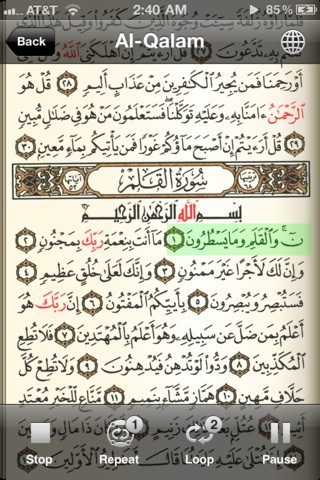 AT&T 2:40 AM 85%
Back Al-Qalam
بِهِۦ تَدَّعُونَ ٢٧ قُلْ أَرَءَيْتُمْ إِنْ أَهْلَكَنِىَ ٱللَّهُ
أَوْ رَحِمَنَا فَمَن يُجِيرُ ٱلْكَٰفِرِينَ مِنْ عَذَابٍ أَلِيمٍ ٢٨ قُلْ هُوَ
ٱلرَّحْمَٰنُ ءَامَنَّا بِهِۦ وَعَلَيْهِ تَوَكَّلْنَا فَسَتَعْلَمُونَ مَنْ هُوَ فِى ضَلَٰلٍ مُّبِينٍ
٢٩ قُلْ أَرَءَيْتُمْ إِنْ أَصْبَحَ مَآؤُكُمْ غَوْرًا فَمَن يَأْتِيكُم بِمَآءٍ مَّعِينٍۭ ٣٠
سُورَةُ ٱلْقَلَمِ
بِسْمِ ٱللَّهِ ٱلرَّحْمَٰنِ ٱلرَّحِيمِ
نٓ وَٱلْقَلَمِ وَمَا يَسْطُرُونَ ١ مَآ أَنتَ بِنِعْمَةِ رَبِّكَ بِمَجْنُونٍ ٢
وَإِنَّ لَكَ لَأَجْرًا غَيْرَ مَمْنُونٍ ٣ وَإِنَّكَ لَعَلَىٰ خُلُقٍ عَظِيمٍ ٤
فَسَتُبْصِرُ وَيُبْصِرُونَ ٥ بِأَييِّكُمُ ٱلْمَفْتُونُ ٦ إِنَّ رَبَّكَ هُوَ
أَعْلَمُ بِمَن ضَلَّ عَن سَبِيلِهِۦ وَهُوَ أَعْلَمُ بِٱلْمُهْتَدِينَ ٧ فَلَا تُطِعِ
ٱلْمُكَذِّبِينَ ٨ وَدُّوا۟ لَوْ تُدْهِنُ فَيُدْهِنُونَ ٩ وَلَا تُطِعْ كُلَّ
حَلَّافٍ مَّهِينٍ ١٠ هَمَّازٍ مَّشَّآءٍۭ بِنَمِيمٍ ١١ مَّنَّاعٍ لِّلْخَيْرِ مُعْتَدٍ
1 2
Stop Repeat Loop Pause